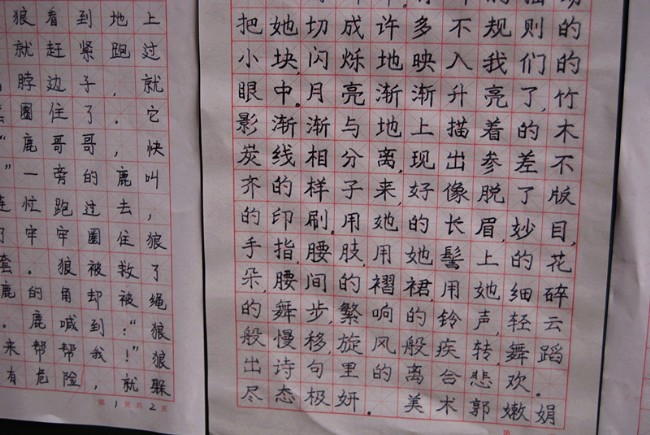 狼看到地上
就赶紧跑过
脖边子，就
圈住了。它
“鹿哥哥，快
”一旁的鹿叫
连忙跑过去，
了牢牢圈住狼
套。狼被救了
鹿的角却被绳
。鹿喊到：“狼
来帮帮我！”狼
有危险，就躲
第1页共2页
把她切成许多不规则的
小块,闪烁地映入我们的
眼中。月亮渐渐升亮了,竹
影渐渐与地上描着的木
荧线相分离,现出参差不
齐的样子来,好像脱了版
的印刷。用她的长眉,妙目,
手指,腰肢,用她髻上的花
朵,腰间的褶裙用她细碎
的舞步,繁响的铃声,轻云
般慢移,旋风般疾转,舞蹈
出诗句里的离合悲欢。
尽态极妍。美术郭嫩娟